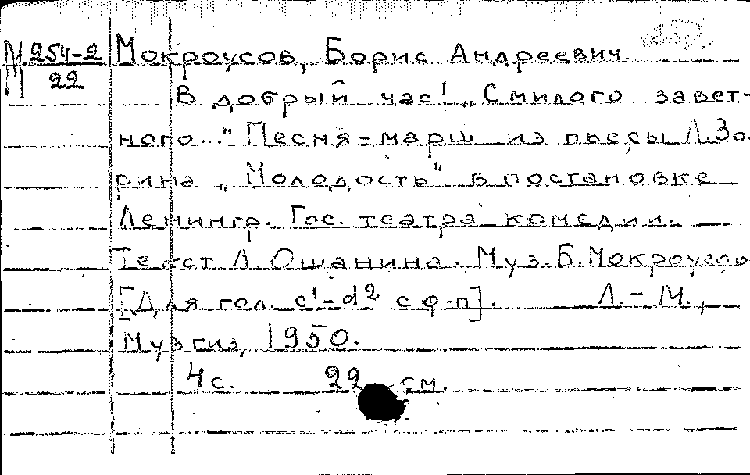 М 254-2 Мокроусов, Борис Андреевич
М 22
В добрый час! „С милого завет-
ного..." Песня-марш из пьесы Л. Зо-
рина „Молодость" в постановке
Ленингр. Гос. театра комедии.
Текст Л. Ошанина. Муз. Б. Мокроусова
[Для гол. c¹-d² с ф-п]. Л.-М.,
Музгиз, 1950.
4 с. 22 см.